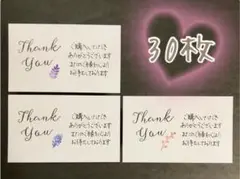 30枚
Thank
You
ご購入いただき
ありがとうございます
またのご縁がありますよう
お待ちしております
Thank
You
ご購入いただき
ありがとうございます
お待ちしております
Thank
You
ご購入いただき
ありがとうございます
お待ちしております